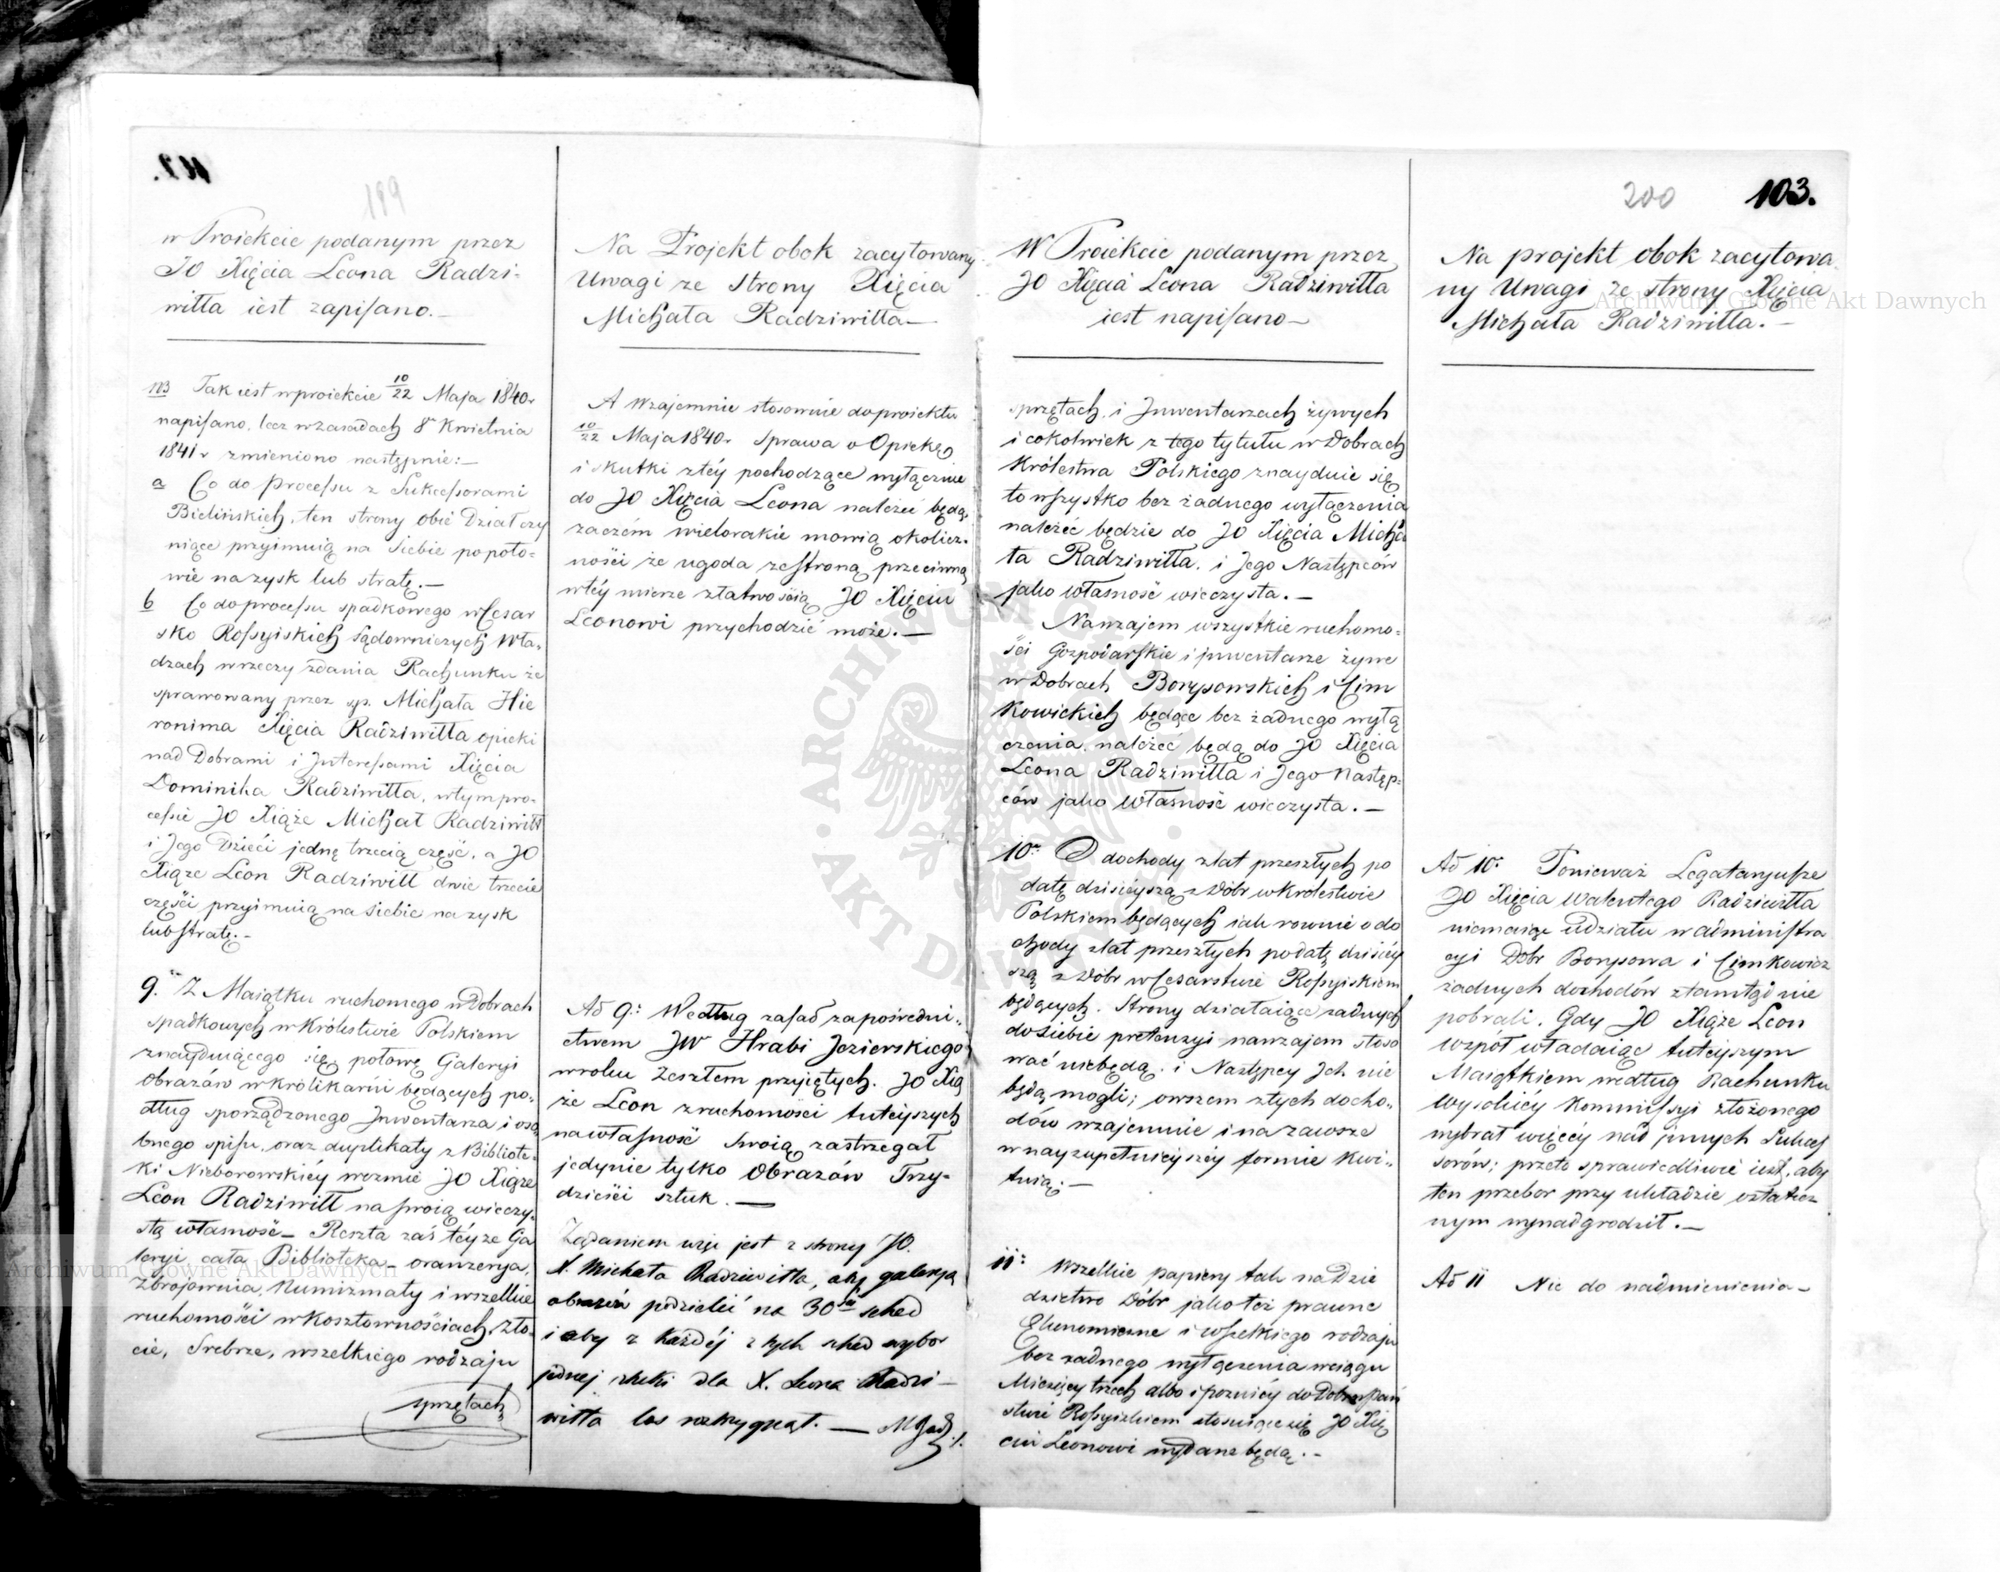 199
w Proiekcie podanym przez
JO Xięcia Leona Radzi-
wiłła iest zapisano.—
NB Tak iest w proiekcie 10/22 Maja 1840r
napisano, lecz w zasadach 8° Kwietnia
1841r zmieniono następnie:—
a Co do Processu z Sukcessorami
Bielińskich, ten strony obie Działczy
niące przyimuią na Siebie po poło-
wie na zysk lub stratę.—
b Co do processu spadkowego w Cesar
sko Rossyiskich Sądowniczych Wła-
dzach w rzeczy zdania Rachunku ze
sprawowany przez śp. Michała Hie
ronima Xięcia Radziwiłła opieki
nad Dobrami i Interessami Xięcia
Dominika Radziwiłła, w tym pro-
cessie JO Xiąże Michał Radziwiłł
i Jego Dzieci jednę trzecią część, a JO
Xiąże Leon Radziwiłł dwie trzecie
części przyimuią na siebie na zysk
lub stratę.—
9. Z Maiątku ruchomego w Dobrach
spadkowych w Królestwie Polskiem
znayduiącego się połowę Galeryi
Obrazów w Królikarni będących po-
dług sporządzonego Inwentarza i oso
bnego spisu, oraz duplikaty z Bibliote-
ki Nieborowskiéy weźmie JO Xiąże
Leon Radziwiłł na swoią wieczy-
stą własność— Reszta zaś téyże Ga
leryi cała Biblioteka— oranżerya,
Zbrojownia, Numizmaty i wszelkie
ruchomości w Kosztownościach, Zło-
cie, Srebrze, wszelkiego rodzaju
sprzętach
Na Projekt obok zacytowany
Uwagi ze Strony Xięcia
Michała Radziwiłła—
A Wzajemnie stosownie do proiektu
10/22 Maja 1840r Sprawa o Opiekę
i skutki z téy pochodzące wyłącznie
do JO Xięcia Leona należeć będą,
zaczém wielorakie mowią okolicz-
ności że ugoda ze stroną przeciwną
w téy mierze z łatwością JO Xięciu
Leonowi przychodzić może.—
Ad 9: Według zasad za pośredni-
ctwem JW Hrabi Jezierskiego
w roku Zeszłem przyiętych. JO Xią
że Leon z ruchomości tuteyszych
na własność Swoią zastrzegał
jedynie tylko Obrazów Trzy-
dzieści sztuk.—
Żądaniem więc jest z strony JO.
X. Michała Radziwiłła, aby galerją
obrazów podzielić na 30ci sched
i aby z każdéj z tych sched wybor
jednej sztuki dla X. Leona Radzi-
wiłła los rozstrzygnął.—
200 103.
W Proiekcie podanym przez
JO Xięcia Leona Radziwiłła
iest napisano—
sprzętach, i Inwentarzach żywych
i cokolwiek z tego tytułu w Dobrach
Królestwa Polskiego znayduie się
to wszystko bez żadnego wyłączenia
należeć będzie do JO Xięcia Micha
ła Radziwiłła, i Jego Następców
jako własność wieczysta.—
Nawzajem wszystkie ruchomo-
ści Gospodarskie i inwentarze żywe
w Dobrach Borysowskich i Cim
kowickich będące bez żadnego wyłą
czenia, należeć będą do JO Xięcia
Leona Radziwiłła i Jego Następ-
ców jako własność wieczysta.—
10° O dochody z lat przeszłych po
datę dzisiéyszą z Dóbr w Królestwie
Polskiem będących iak rownie o do
chody z lat przeszłych po datę dzisiéy
szą z Dóbr w Cesarstwie Rossyiskiem
będących. Strony działaiące żadnych
do siebie pretensyi nawzajem stoso
wać niebędą. i Następcy Ich nie
będą mogli; owszem z tych docho-
dów wzajemnie i na zawsze
w nayzupełnieyszey formie kwi-
tuią.—
11: Wszelkie papiery tak na Dzie
dzictwo Dóbr jako też prawne
Ekonomiczne i wszelkiego rodzaju
bez żadnego wyłączenia w ciągu
Miesięcy trzech albo i poźniéy do Dobr w Pań
stwie Rossyiskiem stosuiące się JO Xię
ciu Leonowi wydane będą.—
Na projekt obok zacytowa-
ny Uwagi ze strony Xięcia
Michała Radziwiłła.—
Ad 10: Ponieważ Legataryusze
JO Xięcia Walentego Radziwiłła
niemaiąc udziału w administra
cyi Dóbr Borysowa i Cimkowicz
żadnych dochodów ztamtąd nie
pobrali. Gdy JO Xiąże Leon
Współ władaiąc tuteyszym
Maiątkiem według Rachunku
Wysokiéy Kommissyi złożonego
wybrał więcéy nad innych Sukces
sorów; przeto sprawiedliwie iest, aby
ten przebor przy układzie ostatecz
nym wynadgrodził.—
Ad 11 Nic do nadmienienia—
Archiwum Główne Akt Dawnych
Archiwum Główne Akt Dawnych
ARCHIWUM GŁÓWNE AKT DAWNYCH